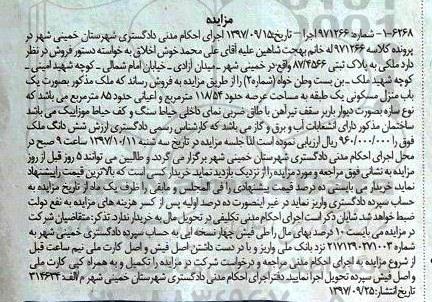 مزایده
۱-۶۲۶۸- شماره ۹۷۱۲۶۶ اجرا - تاریخ ۱۳۹۷/۰۹/۱۵ اجرای احکام مدنی دادگستری شهرستان خمینی شهر در
پرونده کلاسه ۹۷۱۲۶۶ له خانم بهجت شاهین علیه آقای علی محمد خوش اخلاق به خواسته دستور فروش در نظر
دارد ملکی به پلاک ثبتی ۸۷/۴۵۶۶ واقع در خمینی شهر - میدان آزادی - خیابان امام شمالی - کوچه شهید امینی -
کوچه شهید ملک - بن بست وطن خواه (شماره۲) را از طریق مزایده به فروش رساند که ملک مذکور بصورت یک
باب منزل مسکونی یک طبقه به مساحت عرصه حدود ۱۱۸/۵۴ مترمربع و اعیانی حدود ۸۵ مترمربع می باشد که
نوع سازه بصورت دیوار باربر سقف تیرآهن با طاق ضربی نمای داخلی خیاط سنگ و کف حیاط موزاییک می باشد
ساختمان مذکور دارای انشعابات آب و برق و گاز می باشد که کارشناس رسمی دادگستری ارزش شش دانگ ملک
فوق را ۹۶۰/۰۰۰/۰۰۰ ریال ارزیابی نموده است لذا جلسه مزایده در تاریخ سه شنبه ۱۳۹۷/۱۰/۱۱ ساعت ۹ صبح در
محل اجرای احکام مدنی دادگستری شهرستان خمینی شهر برگزار می گردد و طالبین می توانند ۵ روز قبل از روز
مزایده به نشانی فوق مراجعه و مورد مزایده را از نزدیک بازدید نمایند خریدار کسی است که بالاترین قیمت را پیشنهاد
نماید، خریدار می بایستی ده درصد قیمت پیشنهادی را فی المجلس و مابقی را ظرف یک ماه از تاریخ مزایده به
حساب سپرده دادگستری واریز نماید در غیر اینصورت ده درصد اولیه پس از کسر هزینه های مزایده به نفع دولت
ضبط خواهد شد. شایان ذکر است اجرای احکام مدنی تکلیفی در تحویل مال به خریدار ندارد تذکر: متقاضیان شرکت
در مزایده می بایست ۱۰ درصد بهای مال را طی فیش چهار نسخه ایی به حساب سپرده دادگستری خمینی شهر به
شماره ۲۱۷۱۲۹۰۲۷۱۰۰۳ نزد بانک ملی واریز و با در دست داشتن اصل فیش و اصل کارت ملی نیم ساعت قبل
از شروع مزایده به اجرای احکام مدنی مراجعه و درخواست شرکت در مزایده را تکمیل و به همراه کپی کارت ملی
و اصل فیش سپرده تحویل اجرا نمایید. دفتر اجرای احکام مدنی دادگستری شهرستان خمینی شهر م الف: ۳۱۶۶۳۴
تاریخ انتشار: ۱۳۹۷/۰۹/۲۵